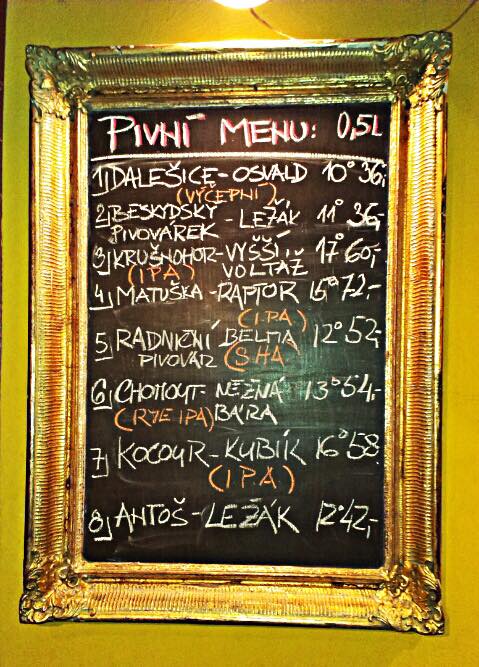 PIVNÍ MENU: 0,5L
1) DALEŠICE - OSVALD 10° 36,-
(VÝČEPNÍ)
2) BESKYDSKÝ PIVOVÁREK - LEŽÁK 11° 36,-
3) KRUŠNOHOR - VYŠŠÍ VOLTÁŽ 17° 60,-
(IPA)
4) MATUŠKA - RAPTOR 15° 72,-
(IPA)
5) RADNIČNÍ PIVOVAR BELMA 12° 52,-
(SHA)
6) CHOMOUT - NĚŽNÁ BÁRA 13° 54,-
(RYE IPA)
7) KOCOUR - KUBÍK 16° 58
(IPA)
8) ANTOŠ - LEŽÁK 12° 42,-